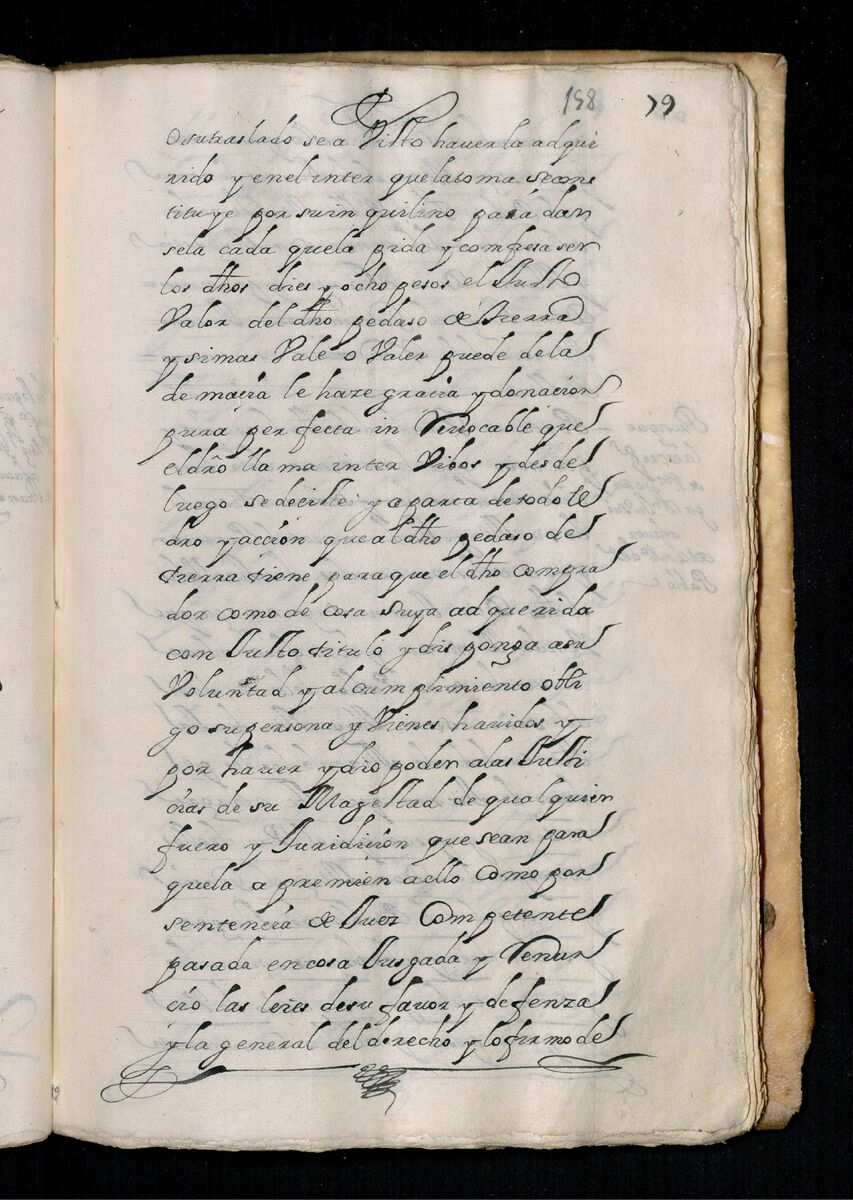 158 79
o su traslado sea Visto haverla adque
rido y en el inter que la toma se cons
tituye por su in quilino para dar
sela cada que la pida y comfiesa ser
los dhos dies y ocho pesos el Justo
Valor del dho pedaso de tierra
y si mas Vale o Valer puede de la
de macia le haze gracia y donacion
pura per fecta in Revocable que
el dro llama inter Vibos y desde
luego se deciste y aparta de todo el
dro y acción que al dho pedaso de
tierra tiene para que el dho compra
dor como de cosa suya ad querida
con Justo titulo y disponga a su
Voluntad y al cumplimiento obli
go su persona y Vienes havidos y
por haver y dio poder a las Justi
cias de su Magestad de qualquier
fuero y Juridición que sean para
que la a premien a ello como por
sentencia de Juez Competente
pasada en cosa Jusgada y Renun
ció las leies de su favor y defenza
y la general del derecho y lo firmo de